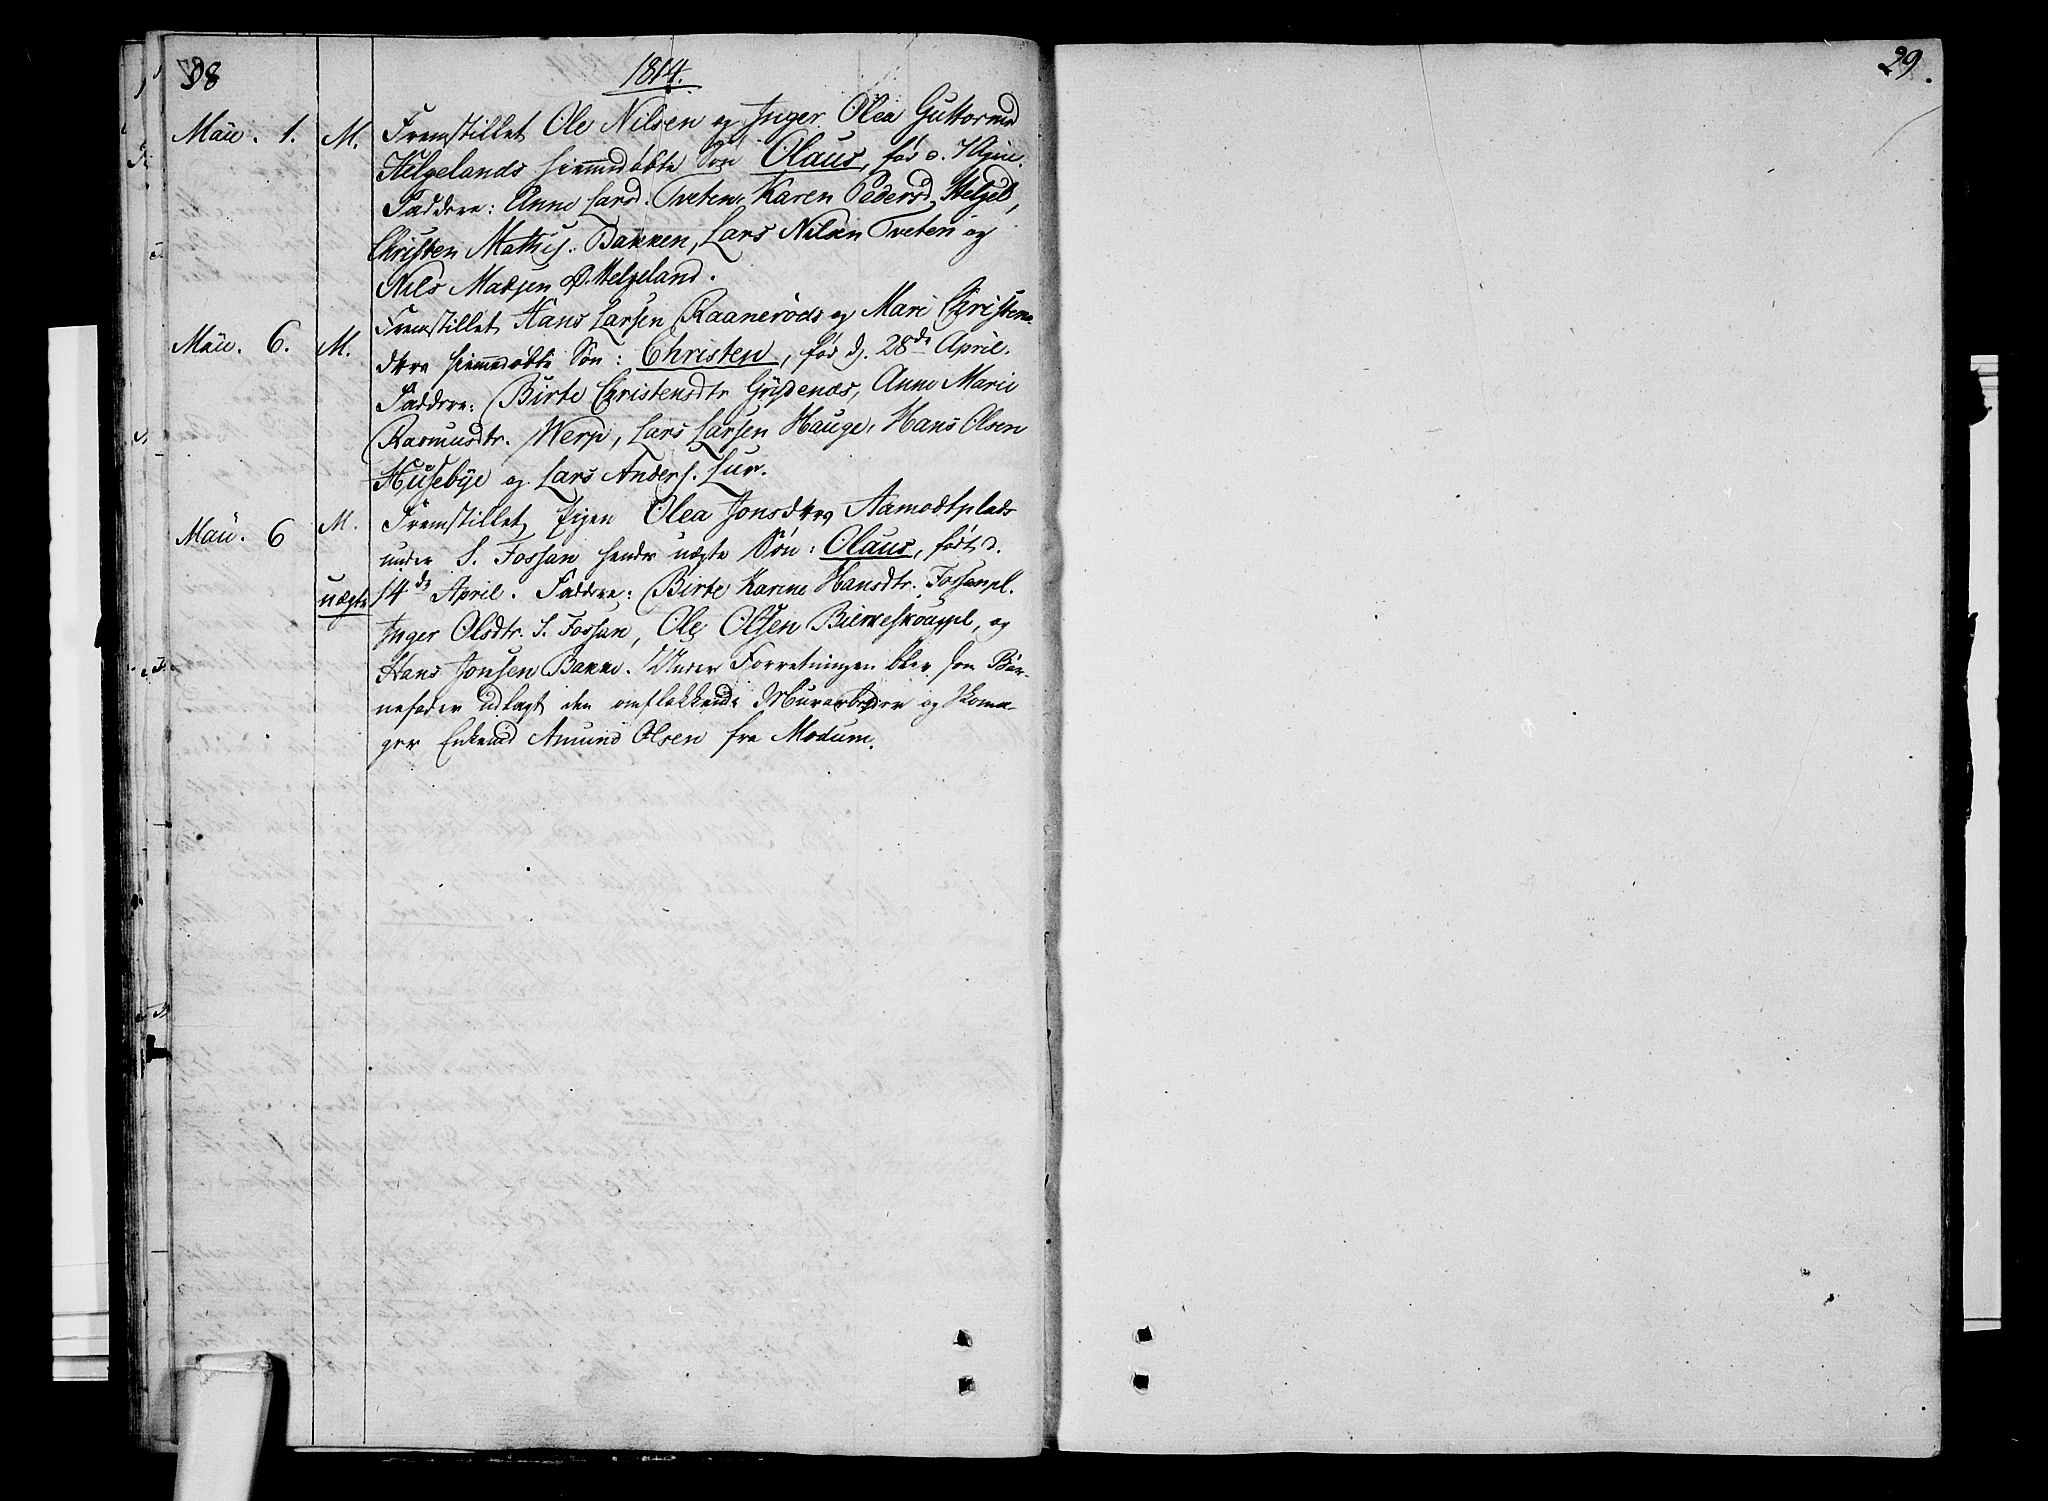 28
1814.
Maii. 1. M. Fremstillet Ole Nilsen og Inger Olea Guttormsd
Helgelands hiemmedøbte Søn Olaus, fød d.
Faddere: Anne Larsd. Tveten, Karen Pedersd. Helgel,
Christen Mathis. Bakken, Lars Nilsen Tveten og
Nils Madsen Ø. Helgeland.
Maii. 6. M. Fremstillet Hans Larsen Raanerøds og Mari Christens-
dtrs hiemmedøbte Søn: Christen, fød d. 28de April.
Faddere: Birte Christensdtr Anne Marie
Rasmusdtr. Werp, Lars Larsen Hauge, Hans Olsen
Husebye og Lars Anders. Lur.
Maii. 6 M. Fremstillet Pigen Olea Jonsdtrs Aamodtplads
under S. Fossan hendes uægte Søn: Olaus, født d.
uægte 14de April. Faddere: Birte Karine Hansdtr. Fossanpl.
Inger Olsdtr. S. Fossan, Ole Olsen og
Hans Jonsen Bakke. Under Forretningen blev som Bar-
nefader udlagt den omflakkende Murarbeider og Skoma-
ger Enkemd Amund Olsen fra Modum.
29.